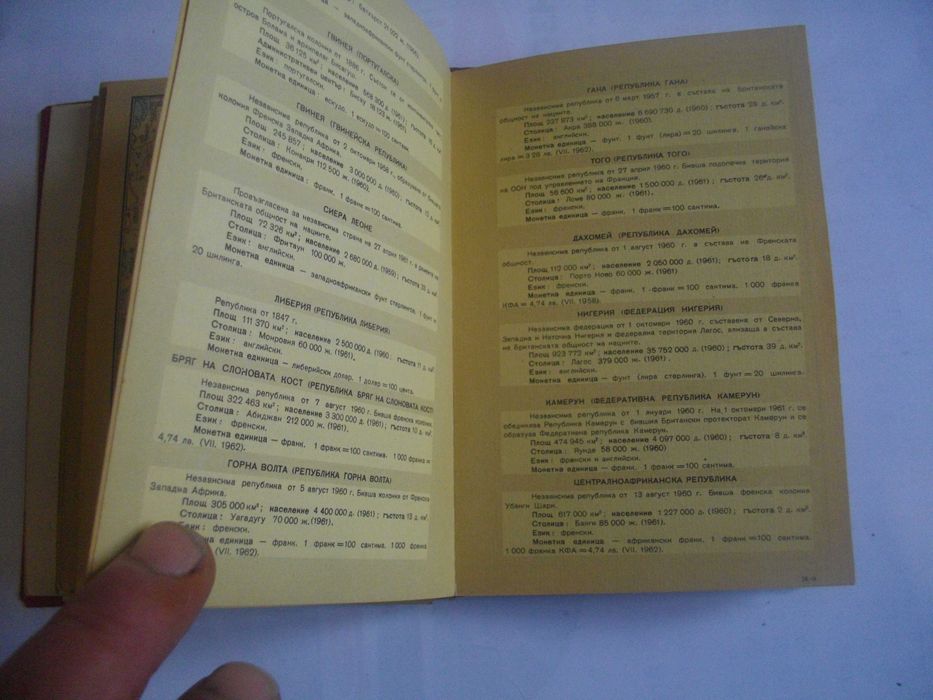 батците 21 000 ж. (1960).
западноафрикански фунт стерлинга. 1 фунт =
ГВИНЕЯ (ПОРТУГАЛСКА)
Португалска колония от 1886 г. Състои се от
остров Болама и архипелаг Бисагуш.
Площ 36 125 км²; население 568 300 д. (1961); гъстота 16 д.
Административен център: Бисау 18 123 ж. (1961).
Език: португалски.
Монетна единица: ескудо. 1 ескудо = 100 сантима.
ГВИНЕЯ (ГВИНЕЙСКА РЕПУБЛИКА)
Независима република от 2 октомври 1958 г., образувана от бившата
колония Френска Западна Африка.
Площ 245 857; население 3 000 000 д. (1960); гъстота 12 д. км².
Столица: Конакри 112 500 ж. (1960).
Език: френски.
Монетна единица: франк. 1 франк = 100 сантима.
СИЕРА ЛЕОНЕ
Провъзгласена за независима страна на 27 април 1961 г. в рамките на
Британската общност на нациите.
Площ 72 326 км²; население 2 680 000 д. (1959); гъстота 35 д. км².
Столица: Фритаун 100 000 ж.
Език: английски.
Монетна единица — западноафрикански фунт стерлинга. 1 фунт =
20 шилинга.
ЛИБЕРИЯ (РЕПУБЛИКА ЛИБЕРИЯ)
Република от 1847 г.
Площ 111 370 км²; население 2 500 000 д. (1960) гъстота 11 д. км².
Столица: Монровия 60 000 ж. (1961).
Език: английски.
Монетна единица — либерийски долар. 1 долар = 100 цента.
БРЯГ НА СЛОНОВАТА КОСТ (РЕПУБЛИКА БРЯГ НА СЛОНОВАТА КОСТ)
Независима република от 7 август 1960 г. Бивша френска колония.
Площ 322 463 км²; население 3 300 000 д. (1961); гъстота 10 д. км².
Столица: Абиджан 212 000 ж. (1961).
Език: френски.
Монетна единица — франк. 1 франк = 100 сантима. 1 000 франка =
4,74 лв. (VII. 1962).
ГОРНА ВОЛТА (РЕПУБЛИКА ГОРНА ВОЛТА)
Независима република от 5 август 1960 г. Бивша колония от Френска
Западна Африка.
Площ 305 000 км²; население 4 400 000 д. (1961); гъстота 13 д. км².
Столица: Уагадугу 70 000 ж. (1961).
Език: френски.
Монетна единица — франк. 1 франк = 100 сантима. 1 000 франка
(VII. 1962).
ГАНА (РЕПУБЛИКА ГАНА)
Независима република от 6 март 1957 г. в състава на британската
общност на нациите.
Площ 237 873 км²; население 6 690 730 д. (1960); гъстота 28 д. км².
Столица: Акра 388 000 ж. (1960).
Език: английски.
Монетна единица — фунт. 1 фунт (лира) = 20 шилинга. 1 ганайска
лира = 3 26 лв. (VII. 1962).
ТОГО (РЕПУБЛИКА ТОГО)
Независима република от 27 април 1960 г. Бивша подопечна територия
на ООН под управлението на Франция.
Площ 56 600 км²; население 1 500 000 д. (1961); гъстота 26 д. км².
Столица: Ломе 80 000 ж. (1961).
Език: френски.
Монетна единица — франк. 1 франк = 100 сантима.
ДАХОМЕЙ (РЕПУБЛИКА ДАХОМЕЙ)
Независима република от 1 август 1960 г. в състава на Френската
общност.
Площ 112 000 км²; население 2 050 000 д. (1961); гъстота 18 д. км².
Столица: Порто Ново 60 000 ж. (1961)
Език: френски.
Монетна единица — франк. 1 франк = 100 сантима. 1 000 франка
КФА = 4,74 лв. (VII. 1958).
НИГЕРИЯ (ФЕДЕРАЦИЯ НИГЕРИЯ)
Независима федерация от 1 октомври 1960 г. съставена от Северна,
Западна и Източна Нигерия и федерална територия Лагос, влизаща в състава
на британската общност на нациите.
Площ 923 772 км²; население 35 752 000 д. (1960); гъстота 39 д. км².
Столица: Лагос 379 000 ж. (1961).
Език: английски.
Монетна единица — фунт (лира стерлинга). 1 фунт = 20 шилинга.
КАМЕРУН (ФЕДЕРАТИВНА РЕПУБЛИКА КАМЕРУН)
Независима република от 1 януари 1960 г. На 1 октомври 1961 г. се
обединява Република Камерун с бившия Британски протекторат Камерун и се
образува Федеративна република Камерун.
Площ 474 945 км²; население 4 097 000 д. (1960); гъстота 8 д. км².
Столица: Яунде 58 000 ж. (1960)
Език: френски и английски.
Монетна единица — франк. 1 франк = 100 сантима.
ЦЕНТРАЛНОАФРИКАНСКА РЕПУБЛИКА
Независима република от 13 август 1960 г. Бивша френска колония
Убанги Шари.
Площ 617 000 км²; население 1 227 000 д. (1960); гъстота 2 д. км².
Столица: Банги 85 000 ж. (1961).
Език: френски.
Монетна единица — африкански франк. 1 франк = 100 сантима.
1 000 франка КФА = 4,74 лв. (VII. 1962).